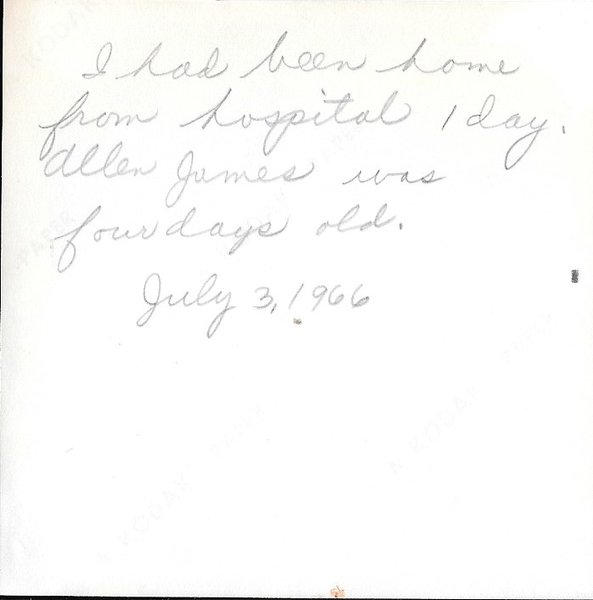 I had been home
from hospital 1 day.
Allen James was
four days old.
July 3, 1966
KODAK
PAPER
PAPER
A KODAK PAPER
A KODAK PAPER